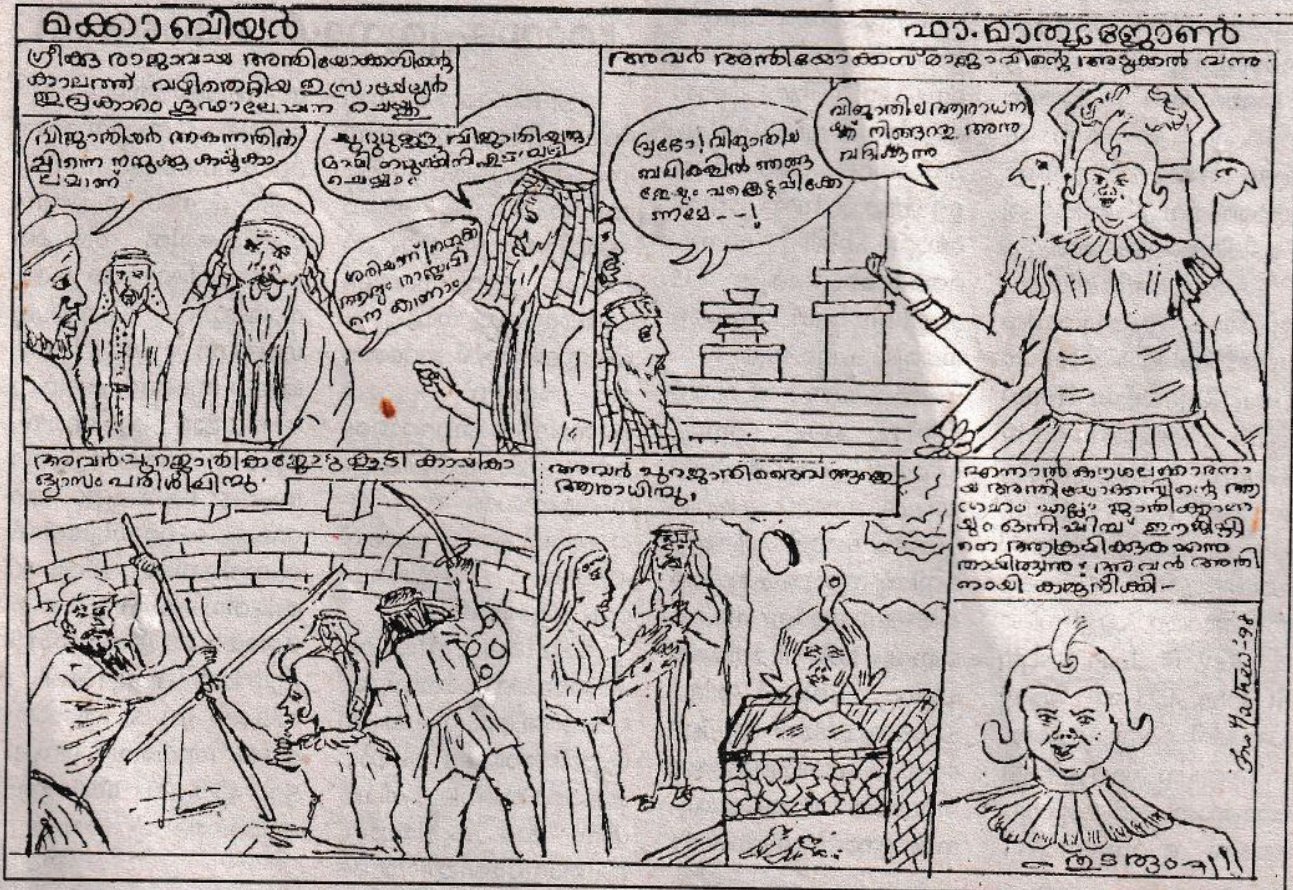 മക്കാബിയർ
ഫാ. മാത്യു ജോൺ
ഗ്രീക്കു രാജാവായ അന്തിയോക്കസിന്റെ
കാലത്ത് വഴിതെറ്റിയ ഇസ്രായേല്യർ
ഇപ്രകാരം ഗൂഢാലോചന ചെയ്തു
വിജാതിയർ ആകുന്നതിൽ
പിന്നെ നമുക്കു കഷ്ടകാ
ലമാണ്
ചുറ്റുമുള്ള വിജാതിയരു
മായി
ചെയ്യാം
ശരിയാണ് നമുക്ക്
ആദ്യം രാജാവി
നെ കാണാം
അവർ അന്തിയോക്കസ് രാജാവിന്റെ അടുക്കൽ വന്നു.
പ്രഭോ! വിജാതിയ
ബലികളിൽ ഞങ്ങ
ളേയും പങ്കെടുപ്പിക്കേ
ണമേ--!
വിജാതിയ ആരാധന
ക്ക് നിങ്ങളെ അനു
വദിക്കുന്നു
അവർ പുറജാതികളോടു കൂടി കായികാ
ഭ്യാസം പരിശീലിച്ചു.
അവർ പുറജാതിദൈവങ്ങളെ
ആരാധിച്ചു,
എന്നാൽ കൗശലക്കാരനാ
യ അന്തിയോക്കസിന്റെ ആ
ഗ്രഹം എല്ലാ ജാതിക്കാരെ
യും ഒന്നിപ്പിച്ച് ഈജിപ്തി
നെ ആക്രമിക്കുക എന്ന
തായിരുന്നു; അവൻ അതി
നായി കരുനീക്കി-
Mathew-98
- തുടരും